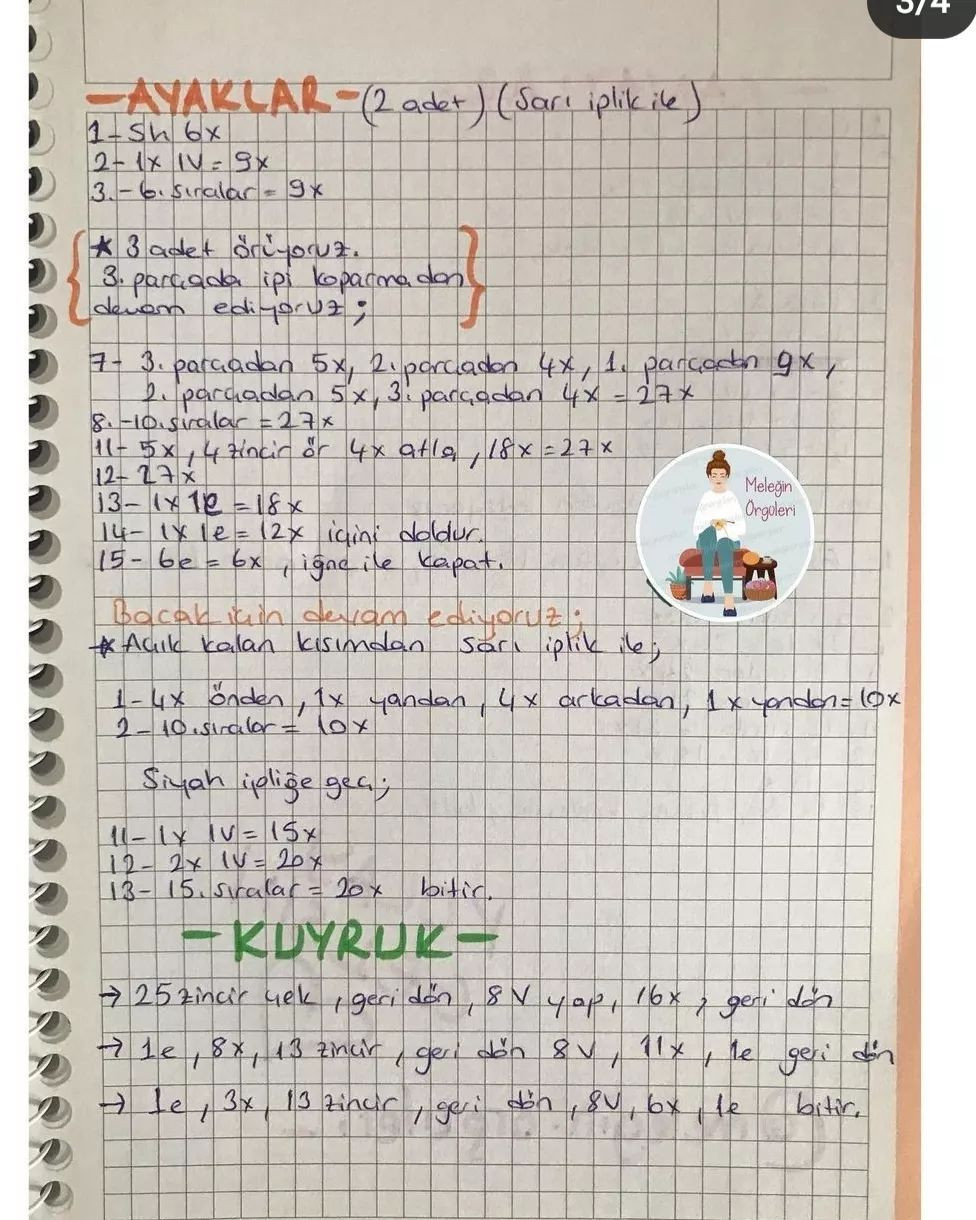 3/4
-AYAKLAR-(2 adet) (Sarı iplik ile)
1- Sh 6x
2- 1x 1V = 9x
3.- 6. sıralar = 9x
* 3 adet örüyoruz.
3. parçada ipi koparmadan
devam ediyoruz;
7- 3. parçadan 5x, 2. parçadan 4x, 1. parçadan 9x,
2. parçadan 5x, 3. parçadan 4x = 27x
8.-10. sıralar = 27x
11- 5x, 4 zincir ör 4x atla, 18x = 27x
12- 27x
13- 1x 1e = 18x
14- 1x 1e = 12x içini doldur.
15- 6e = 6x, iğne ile kapat.
Meleğin
Örgüleri
Bacak için devam ediyoruz;
* Açık kalan kısımdan sarı iplik ile;
1- 4x önden, 1x yandan, 4x arkadan, 1x yandan = 10x
2- 10. sıralar = 10x
Siyah ipliğe geç;
11- 1x 1V = 15x
12- 2x 1V = 20x
13- 15. sıralar = 20x bitir.
-KUYRUK-
→ 25 zincir çek, geri dön, 8V yap, 16x, geri dön
→ 1e, 8x, 13 zincir, geri dön 8V, 11x, 1e geri dön
→ 1e, 3x, 13 zincir, geri dön, 8V, 6x, 1e bitir.